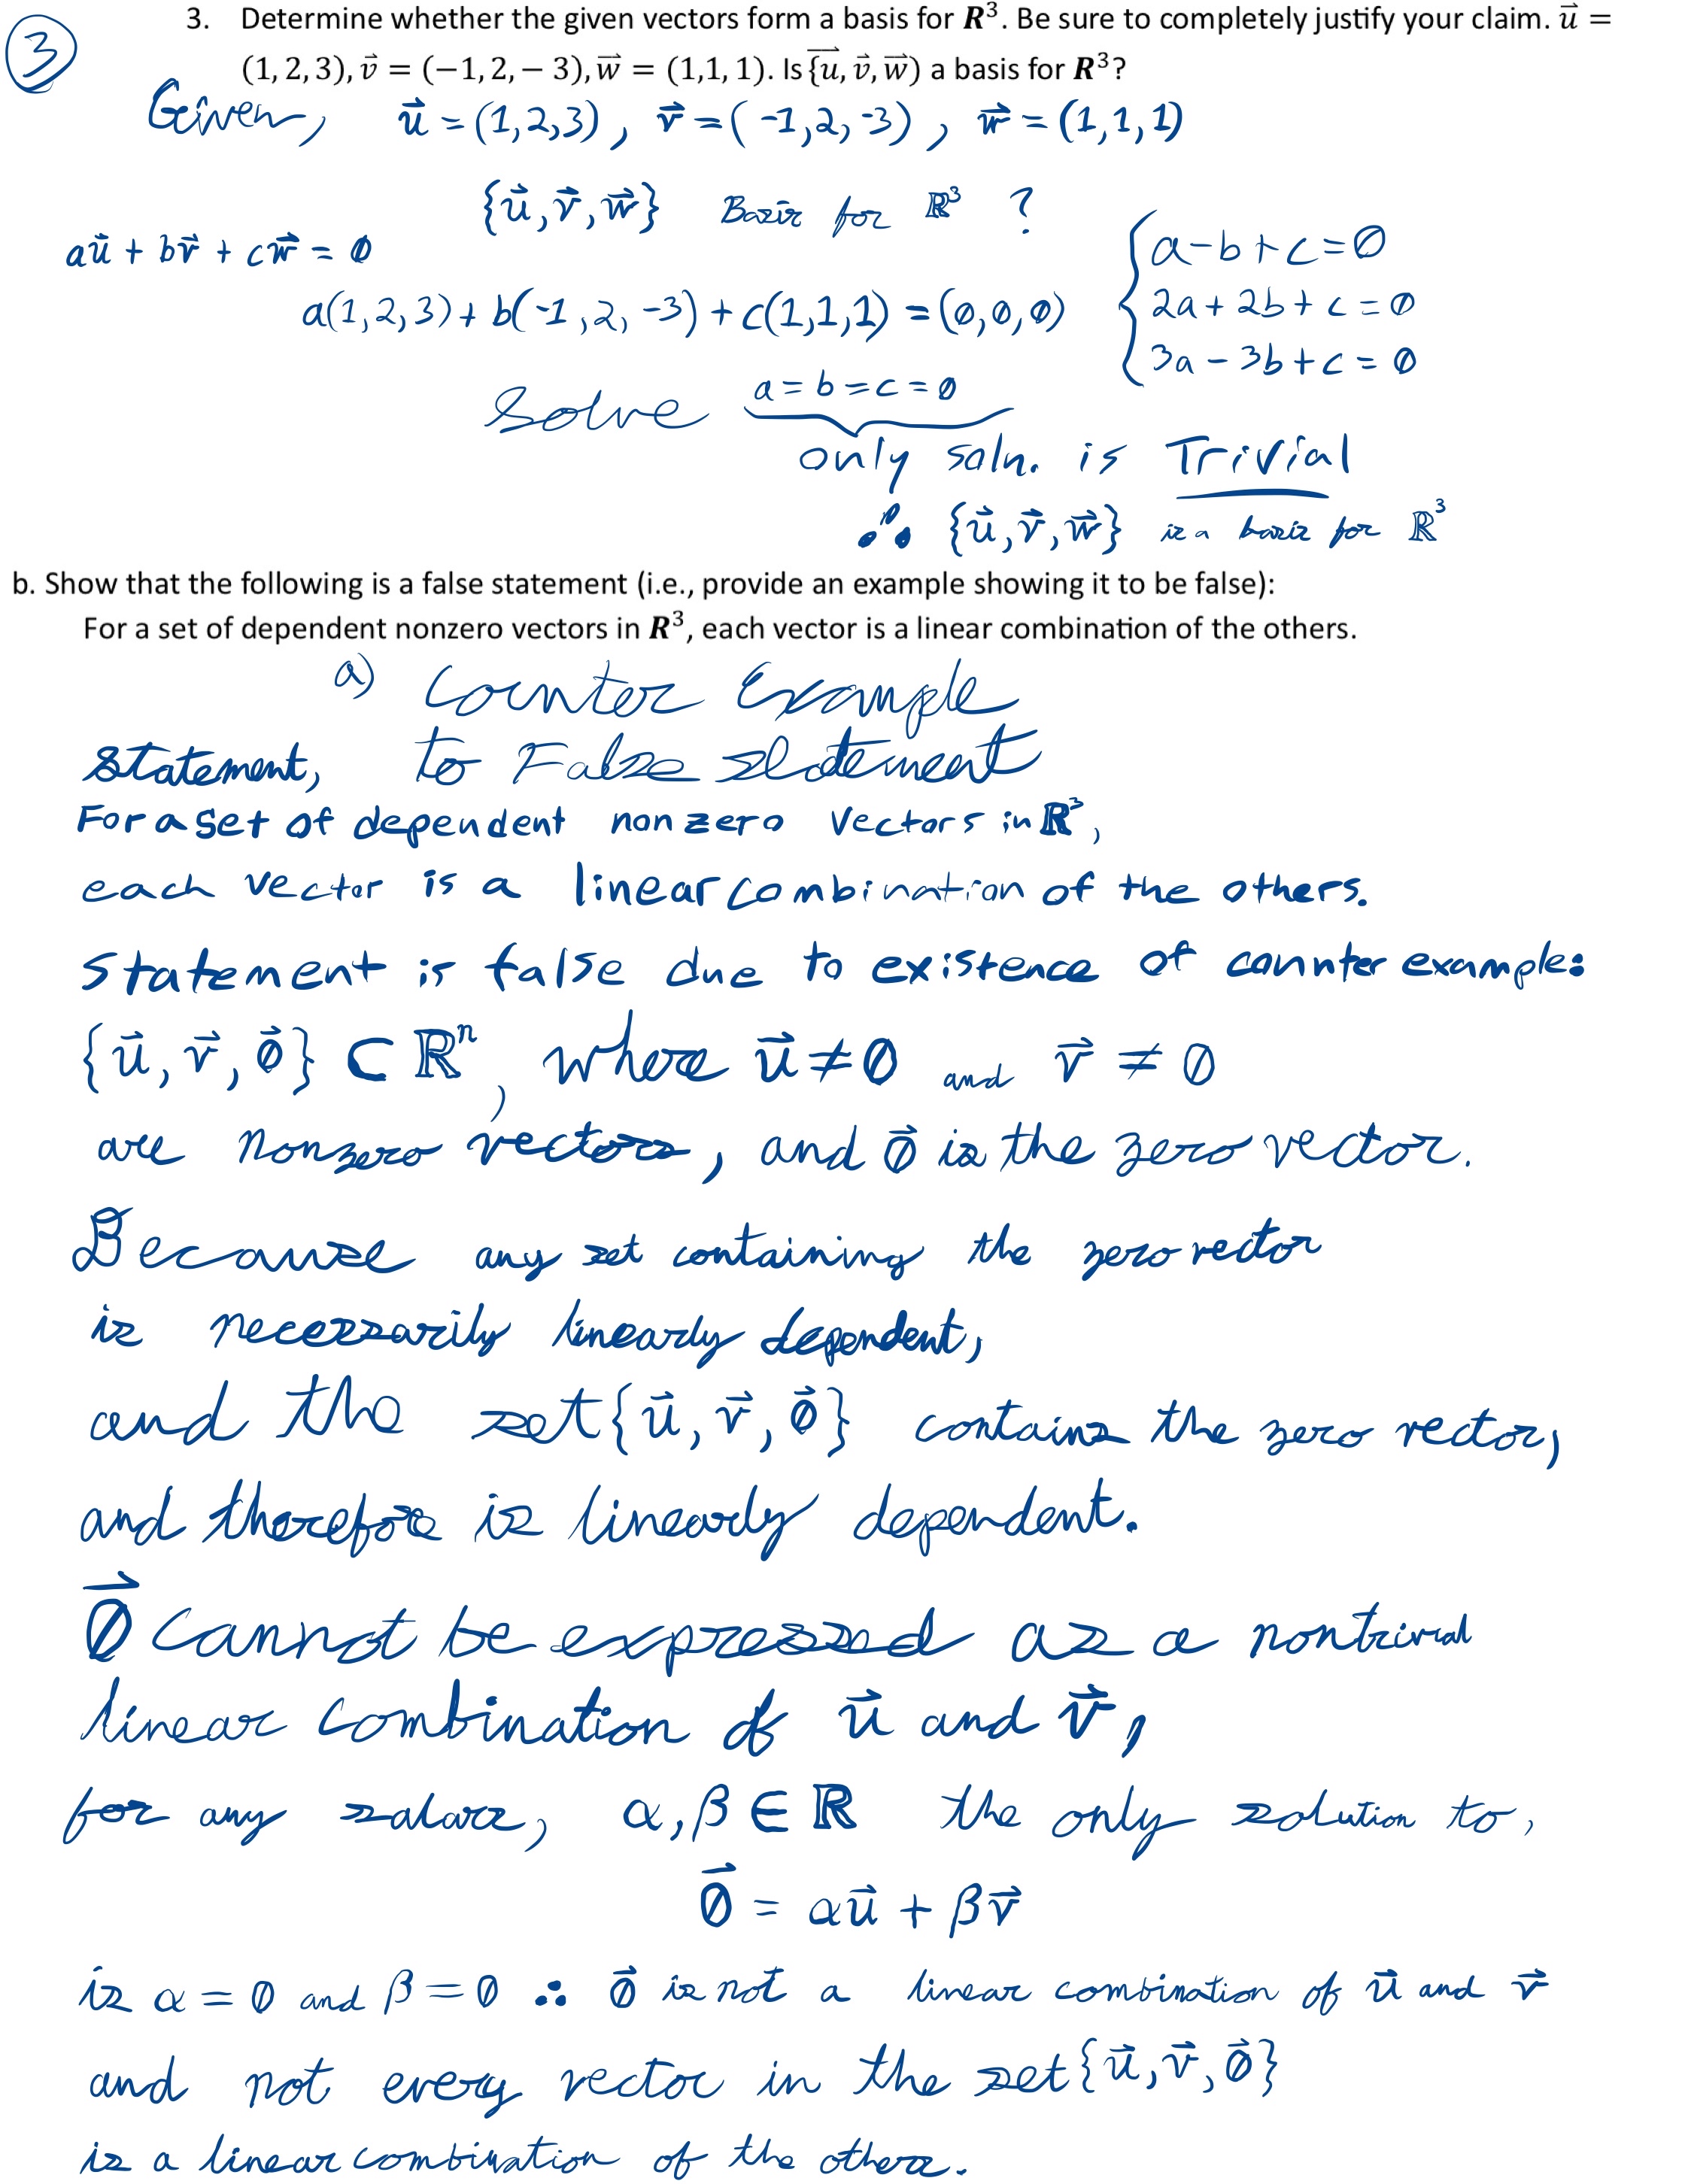 ③
3. Determine whether the given vectors form a basis for R³. Be sure to completely justify your claim. u⃗ =
(1, 2, 3), v⃗ = (−1, 2, − 3), w⃗ = (1,1, 1). Is {u⃗, v⃗, w⃗) a basis for R³?
Given, u⃗ = (1,2,3), v⃗ = (-1,2,-3), w⃗ = (1,1,1)
{u⃗, v⃗, w⃗} Basis for ℝ³ ?
au⃗ + bv⃗ + cw⃗ = 0
a(1,2,3) + b(-1,2,-3) + c(1,1,1) = (0,0,0)
a-b+c=0
2a+2b+c=0
3a-3b+c=0
Solve a=b=c=0
only soln. is Trivial
∴ {u⃗, v⃗, w⃗} is a basis for ℝ³
b. Show that the following is a false statement (i.e., provide an example showing it to be false):
For a set of dependent nonzero vectors in R³, each vector is a linear combination of the others.
a) Counter Example
to False statement
Statement,
For a set of dependent nonzero vectors in ℝ³,
each vector is a linear combination of the others.
Statement is false due to existence of counter example:
{u⃗, v⃗, 0⃗} ⊂ ℝⁿ, where u⃗ ≠ 0 and v⃗ ≠ 0
are nonzero vectors, and 0⃗ is the zero vector.
Because any set containing the zero vector
is necessarily linearly dependent,
and the set {u⃗, v⃗, 0⃗} contains the zero vector,
and therefore is linearly dependent.
0⃗ cannot be expressed as a nontrivial
linear combination of u⃗ and v⃗,
for any salars, α, β ∈ ℝ the only solution to,
0⃗ = αu⃗ + βv⃗
is α = 0 and β = 0 ∴ 0⃗ is not a linear combination of u⃗ and v⃗
and not every vector in the set {u⃗, v⃗, 0⃗}
is a linear combination of the others.